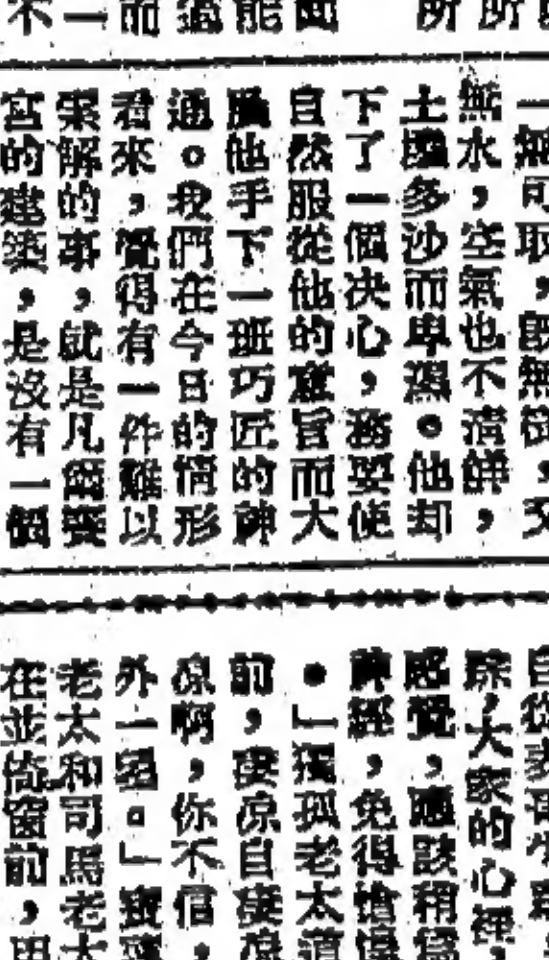 所
所
面
能
過
而
一
不
一無可取，既無樹，又
無水，空氣也不清鮮，
土壤多沙而卑濕。他却
下了一個决心，務要使
自然服從他的意旨而大
他手下一班巧匠的神
通。我們在今日的情形
看來，覺得有一件難以
索解的事，就是凡爾賽
宮的建築，是沒有一個
自從
踪，大家的心裡，
感覺，應該稍爲
神經，免得
。」獨孤老太道
前，凄凉自凄凉
凉啊，你不信，
外一
老太和司馬老太
在並倚窗前，